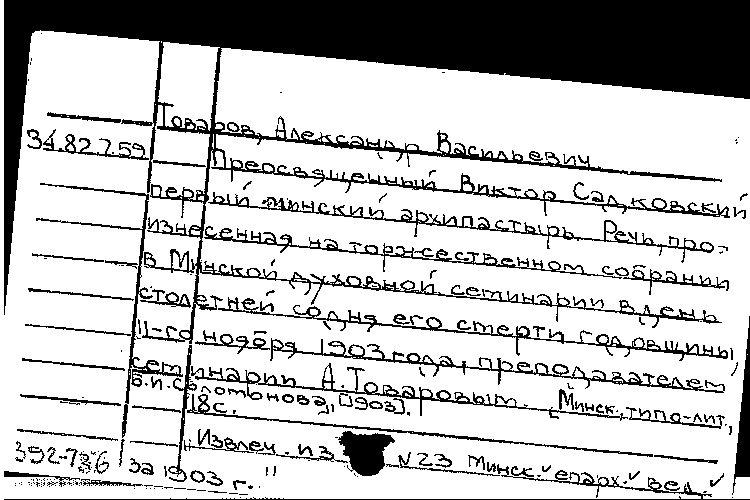 Товаров, Александр Васильевич
34.82.7.59
Преосвященный Виктор Садковский
первый минский архипастырь. Речь, про-
изнесенная на торжественном собрании
в Минской духовной семинарии в день
столетней со дня его смерти годовщины,
11-го ноября 1903 года, преподавателем
семинарии А. Товаровым. [Минск, типо-лит.,
Б.И. Соломонова, [1903].
18с.
„Извлеч. из N23 Минск. епарх. вед.
392-736 за 1903 г."